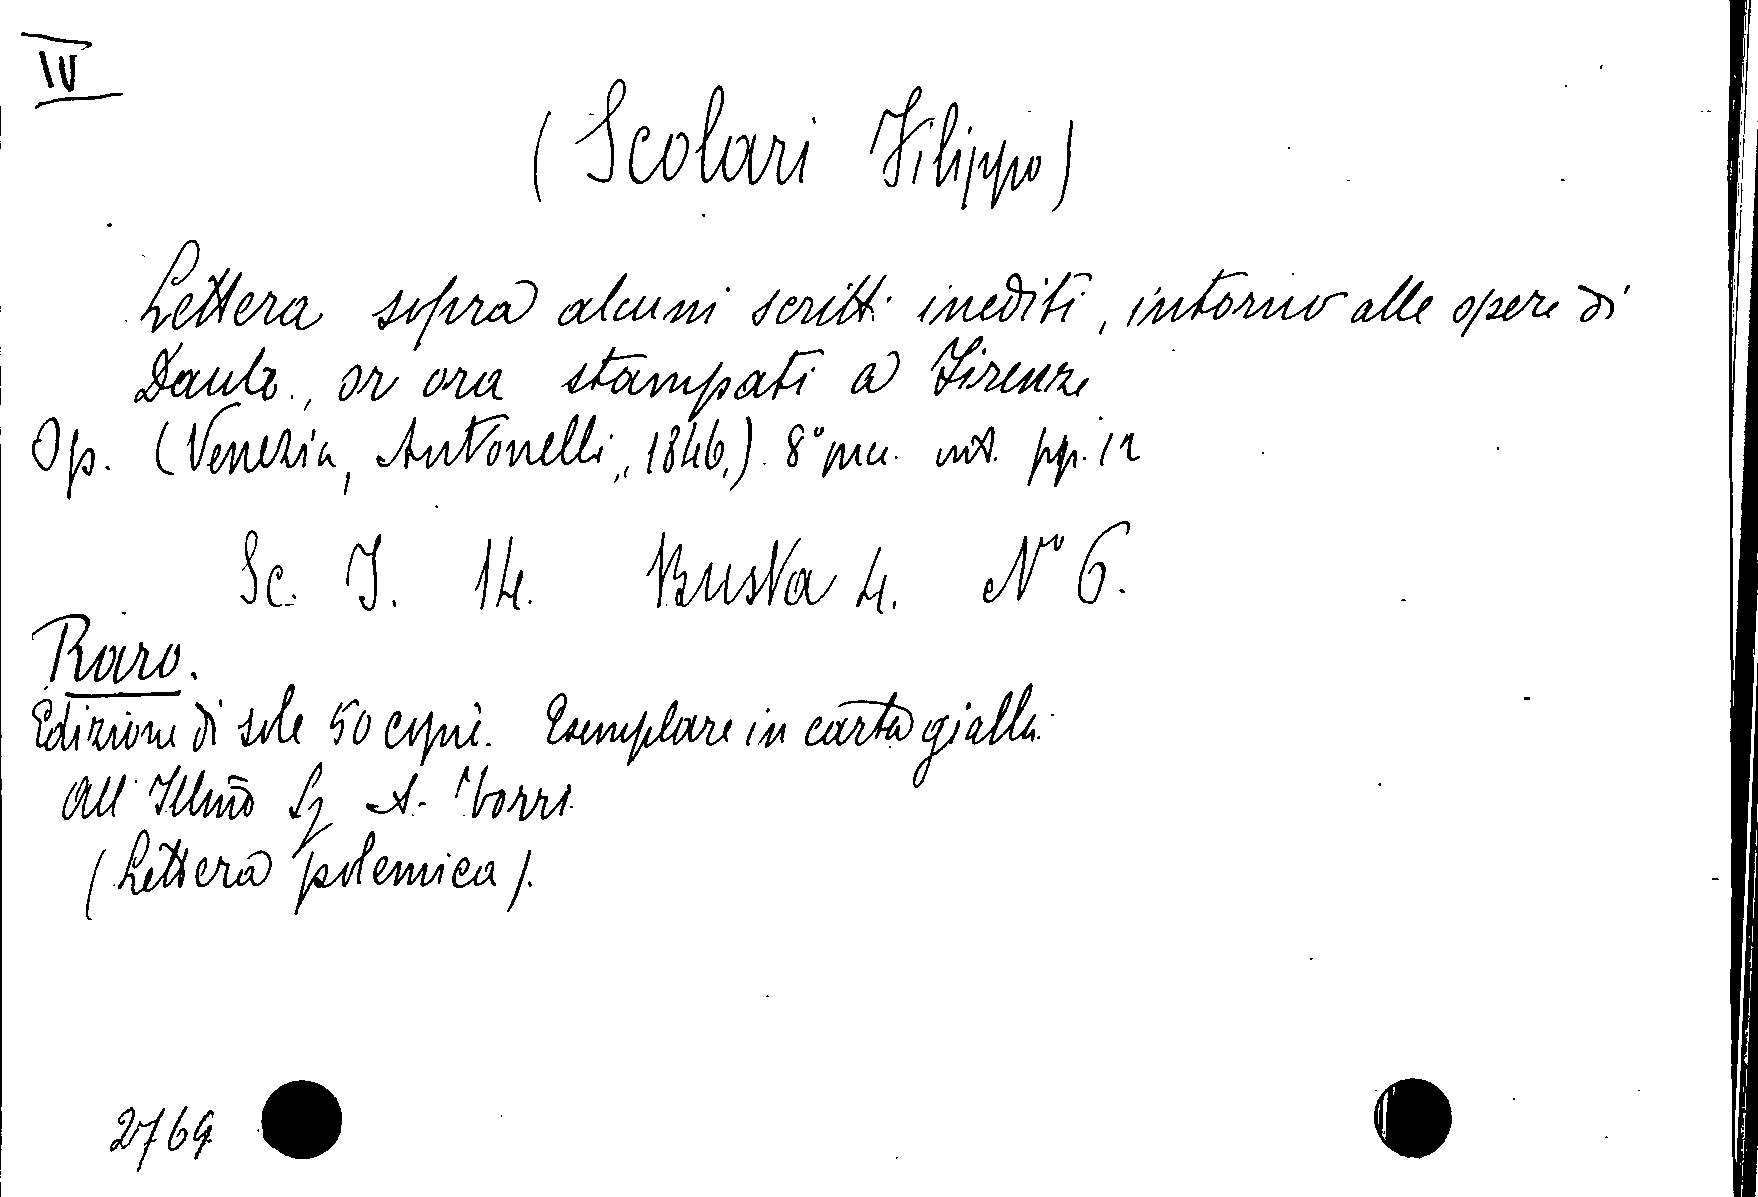 IV
(Scolari Filippo)
Lettera sopra alcuni scritti inediti, intorno alle opere di
Dante, or ora stampati a Firenze
Op. (Venezia, Antonelli, 1846,) 8° picc. int. pp. 12
Sc. I. 14. Busta 4. N° 6.
Raro.
Edizione di sole 50 copie. Esemplare in carta gialla.
All' Illmo Sg A. Torri
(Lettera polemica).
2769